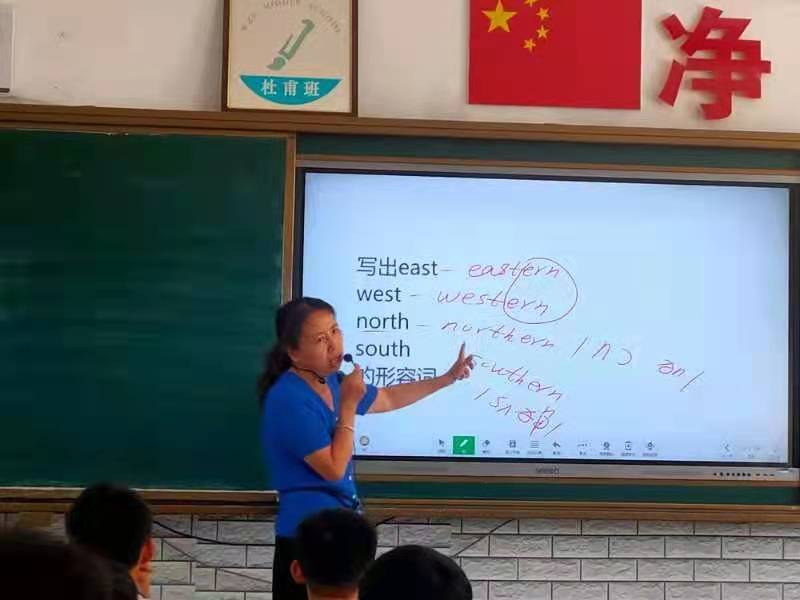 杜甫班
净
写出east – eastern
west – western
north – northern
south southern
的形容词